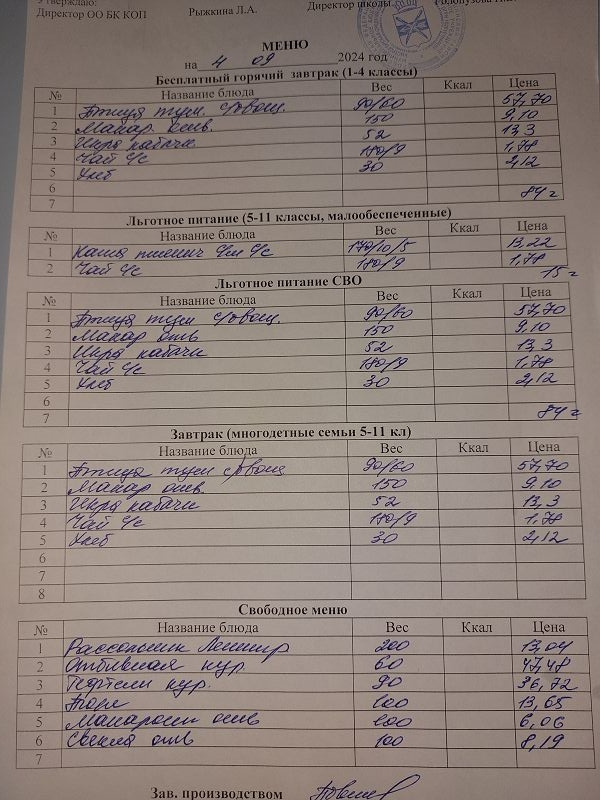 Утверждаю:
Директор ОО БК КОП Рыжкина Л.А. Директор школы
МЕНЮ
на 4 09 2024 год
Бесплатный горячий завтрак (1-4 классы)
№ Название блюда Вес Ккал Цена
1 Птица туш. с/овощ. 90/60 57,70
2 Макар. отв. 150 9,10
3 Икра кабачк 52 13,3
4 Чай с/с 180/9 1,78
5 Хлеб 30 2,12
6
7 84 г
Льготное питание (5-11 классы, малообеспеченные)
№ Название блюда Вес Ккал Цена
1 Каша пшенич с/м с/с 170/10/5 13,22
2 Чай с/с 180/9 1,78
15 г
Льготное питание СВО
№ Название блюда Вес Ккал Цена
1 Птица туш с/овощ. 90/60 57,70
2 Макар отв 150 9,10
3 Икра кабачк 52 13,3
4 Чай с/с 180/9 1,78
5 Хлеб 30 2,12
6
7 84 г
Завтрак (многодетные семьи 5-11 кл)
№ Название блюда Вес Ккал Цена
1 Птица туш с/овощ 90/60 57,70
2 Макар отв. 150 9,10
3 Икра кабачк 52 13,3
4 Чай с/с 180/9 1,78
5 Хлеб 30 2,12
6
7
8
Свободное меню
№ Название блюда Вес Ккал Цена
1 Рассольник Ленингр 200 13,04
2 Отбивная кур 60 47,48
3 Тефтели кур. 90 36,72
4 100 13,65
5 Макароны отв 100 6,06
6 Свекла отв 100 8,19
7
Зав. производством